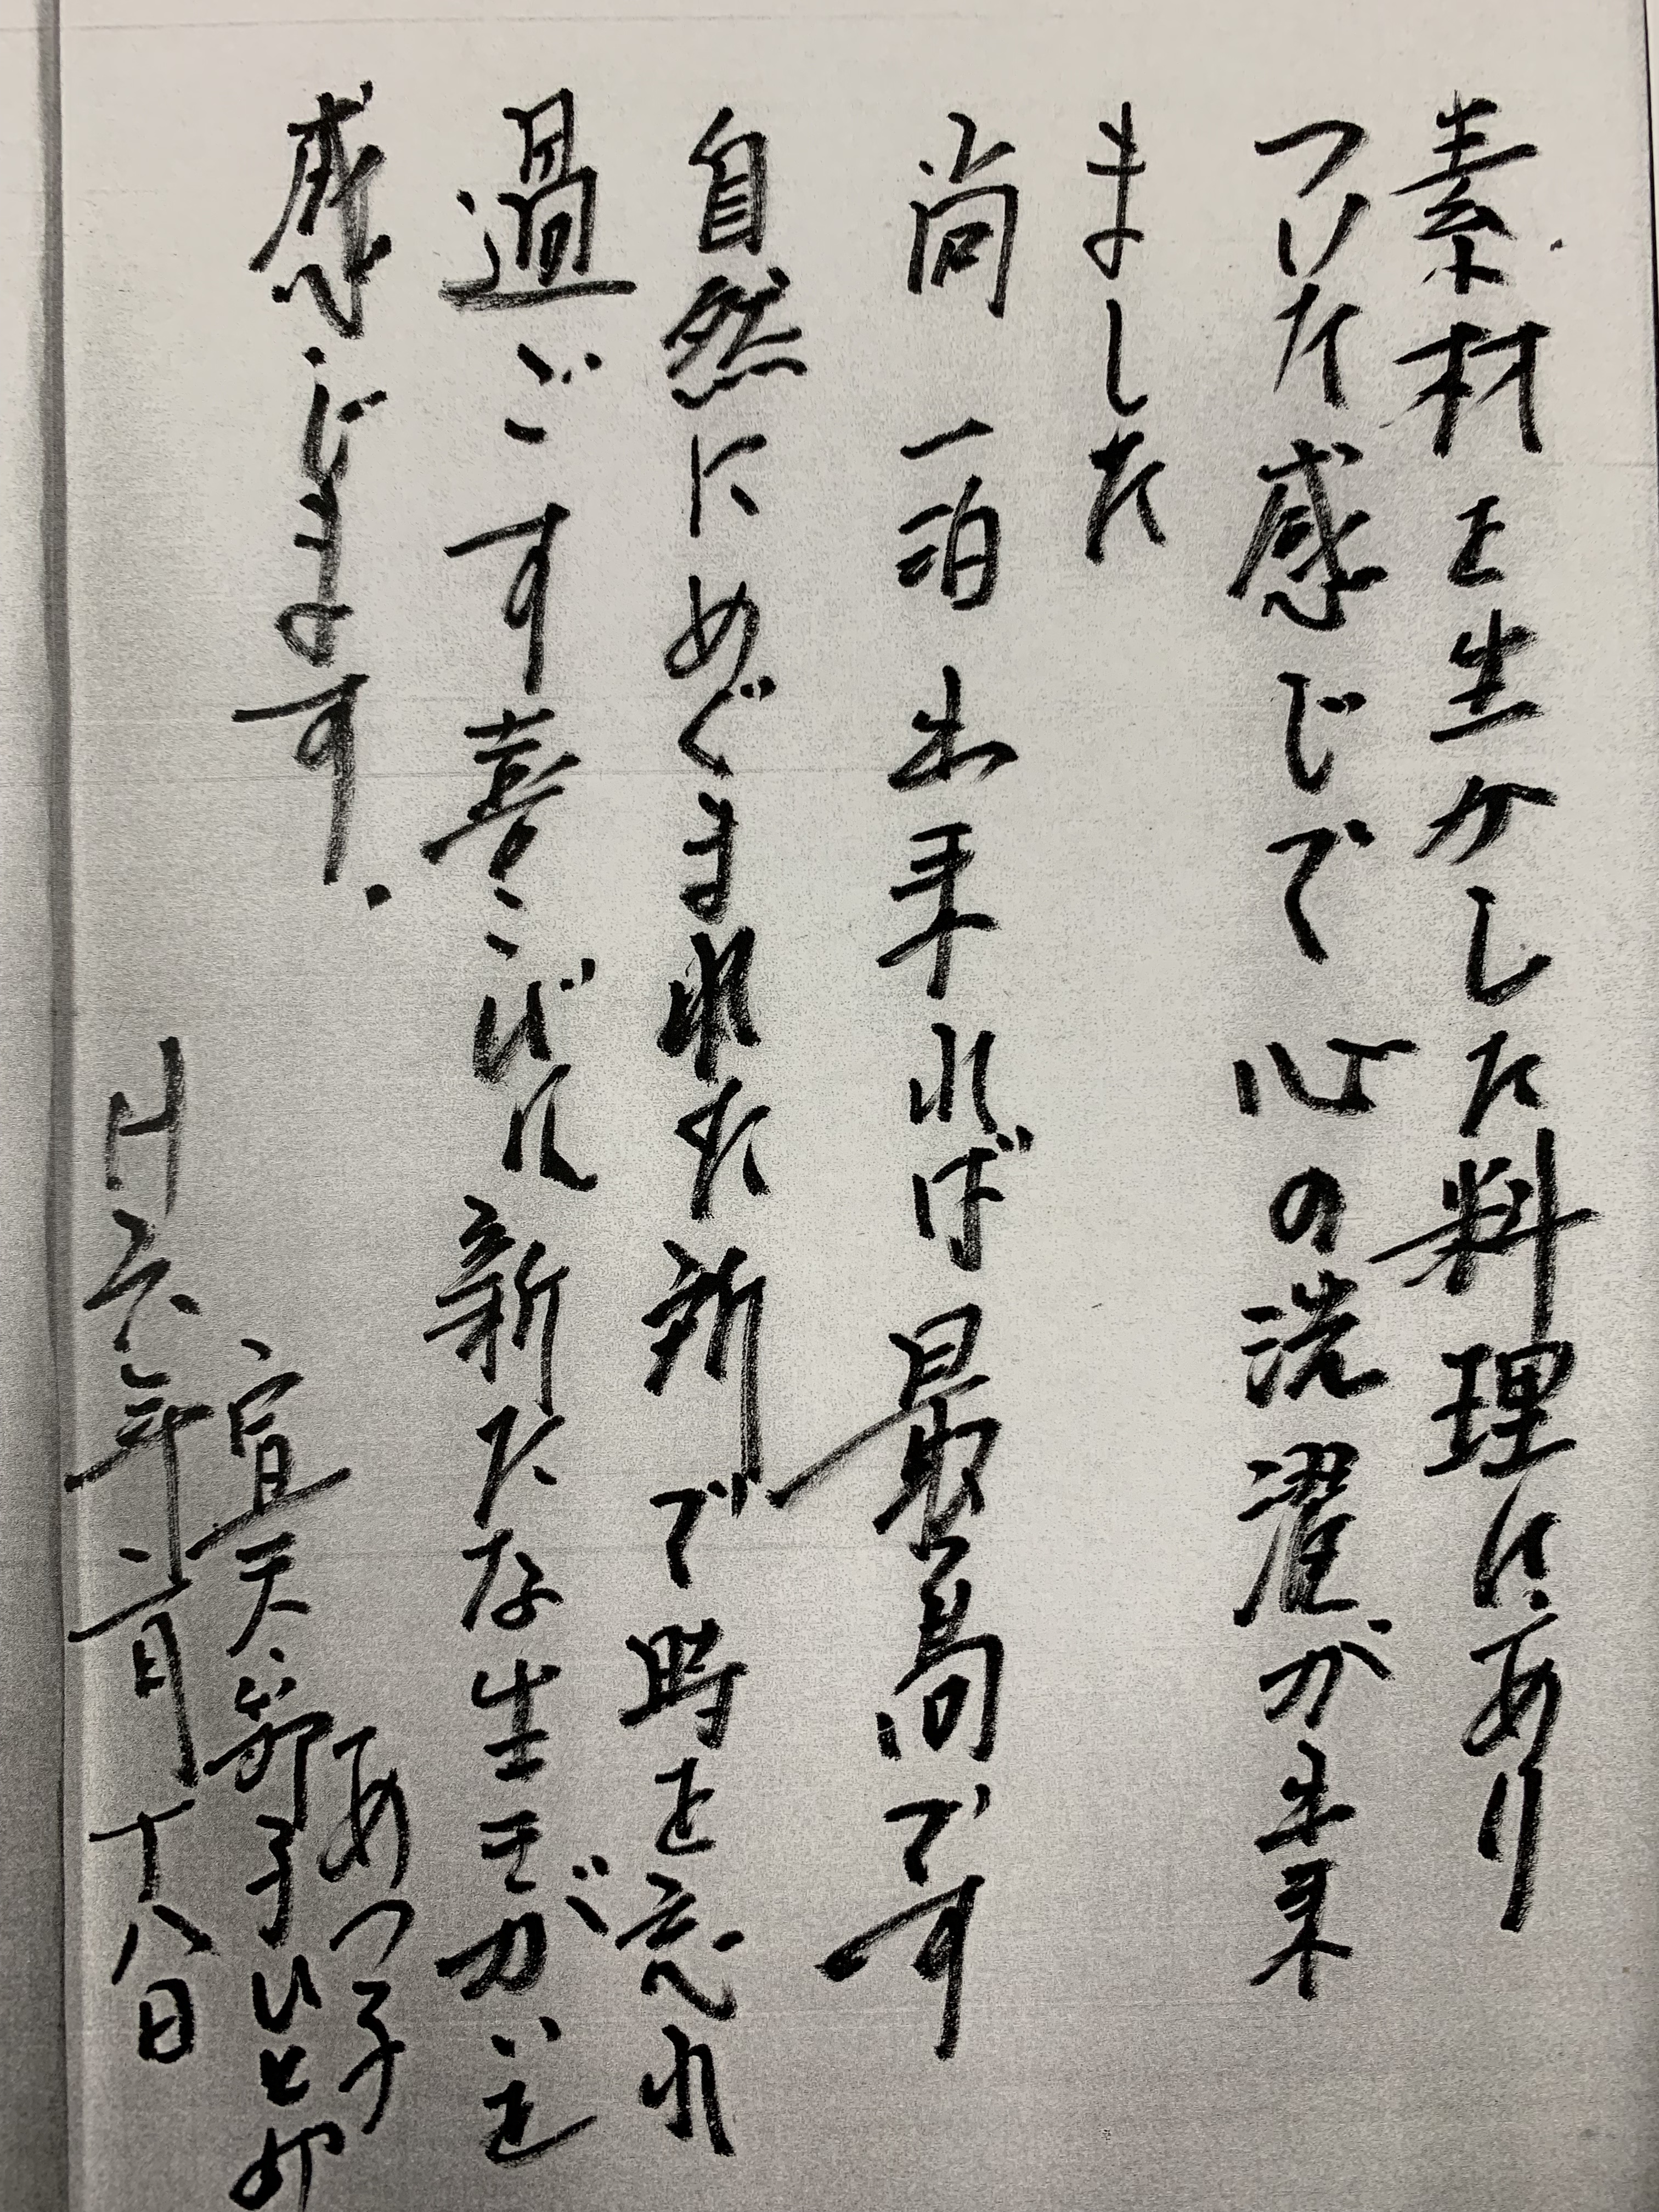 素材を生かした料理にあり
つけた感じで心の洗濯が出来
ました
尚一泊出来れば最高です
自然にめぐまれた所で時を忘れ
過ごす喜こびに新たな生きがいを
感じます.
あつ子
節子ひとみ
H六年六月十八日